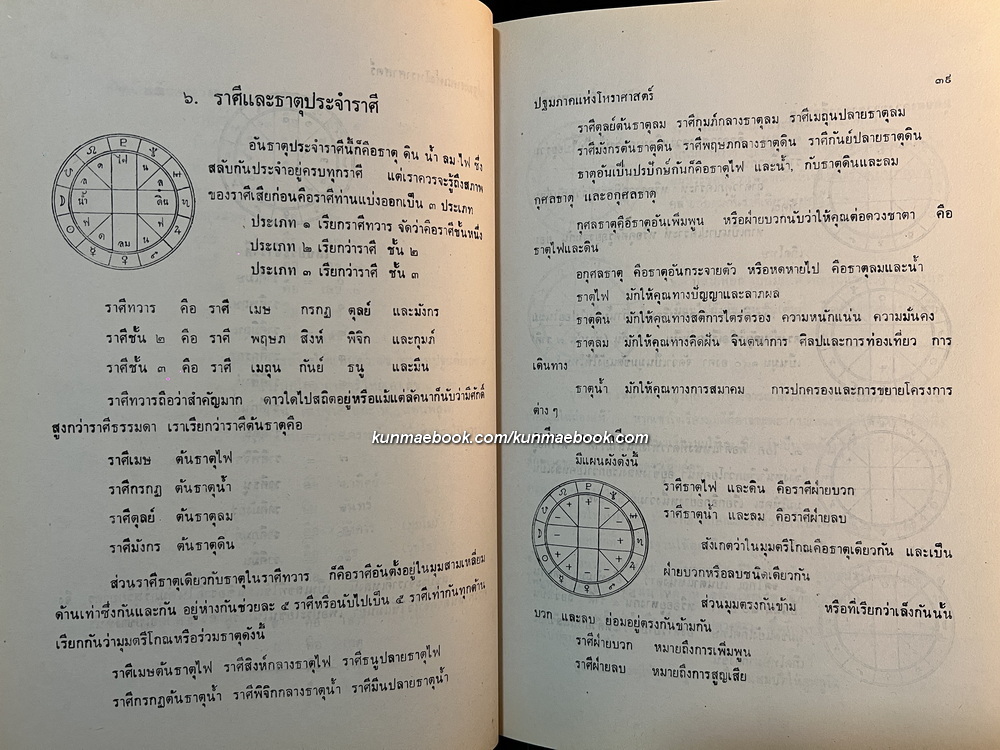 ๖. ราศีและธาตุประจำราศี
อันธาตุประจำราศีนี้ก็คือธาตุ ดิน น้ำ ลม ไฟ ซึ่ง
สลับกันประจำอยู่ครบทุกราศี แต่เราควรจะรู้ถึงสภาพ
ของราศีเสียก่อนคือราศีท่านแบ่งออกเป็น ๓ ประเภท
ประเภท ๑ เรียกราศีทวาร จัดว่าคือราศีชั้นหนึ่ง
ประเภท ๒ เรียกว่าราศี ชั้น ๒
ประเภท ๓ เรียกว่าราศี ชั้น ๓
ไฟ
ด
น
ล
ล
น้ำ
ดิน
ฟ
ฟ
ด
น
ลม
ราศีทวาร คือ ราศี เมษ กรกฎ ตุลย์ และมังกร
ราศีชั้น ๒ คือ ราศี พฤษภ สิงห์ พิจิก และกุมภ์
ราศีชั้น ๓ คือ ราศี เมถุน กันย์ ธนู และมีน
ราศีทวารถือว่าสำคัญมาก ดาวใดไปสถิตอยู่หรือแม้แต่ลัคนาก็นับว่ามีศักดิ์
สูงกว่าราศีธรรมดา เราเรียกว่าราศีต้นธาตุคือ
ราศีเมษ ต้นธาตุไฟ
ราศีกรกฎ ต้นธาตุน้ำ
ราศีตุลย์ ต้นธาตุลม
ราศีมังกร ต้นธาตุดิน
ส่วนราศีธาตุเดียวกับธาตุในราศีทวาร ก็คือราศีอันตั้งอยู่ในมุมสามเหลี่ยม
ด้านเท่าซึ่งกันและกัน อยู่ห่างกันช่วยละ ๕ ราศีหรือนับไปเป็น ๕ ราศีเท่ากันทุกด้าน
เรียกกันว่ามุมตรีโกณหรือร่วมธาตุดังนี้
ราศีเมษต้นธาตุไฟ ราศีสิงห์กลางธาตุไฟ ราศีธนูปลายธาตุไฟ
ราศีกรกฎต้นธาตุน้ำ ราศีพิจิกกลางธาตุน้ำ ราศีมีนปลายธาตุน้ำ
๓๙
ปฐมภาคแห่งโหราศาสตร์
ราศีตุลย์ต้นธาตุลม ราศีกุมภ์กลางธาตุลม ราศีเมถุนปลายธาตุลม
ราศีมังกรต้นธาตุดิน ราศีพฤษภกลางธาตุดิน ราศีกันย์ปลายธาตุดิน
ธาตุอันเป็นปรปักษ์กันก็คือธาตุไฟ และน้ำ, กับธาตุดินและลม
กุศลธาตุ และอกุศลธาตุ
กุศลธาตุคือธาตุอันเพิ่มพูน หรือฝ่ายบวกนับว่าให้คุณต่อดวงชาตา คือ
ธาตุไฟและดิน
อกุศลธาตุ คือธาตุอันกระจายตัว หรือหดหายไป คือธาตุลมและน้ำ
ธาตุไฟ มักให้คุณทางปัญญาและลาภผล
ธาตุดิน มักให้คุณทางสติการไตร่ตรอง ความหนักแน่น ความมั่นคง
ธาตุลม มักให้คุณทางคิดฝัน จินตนาการ ศิลปและการท่องเที่ยว การ
เดินทาง
ธาตุน้ำ มักให้คุณทางการสมาคม การปกครองและการขยายโครงการ
ต่าง ๆ
kunmaebook.com/kunmaebook.com
มีแผนผังดังนี้
ราศีธาตุไฟ และดิน คือราศีฝ่ายบวก
ราศีธาตุน้ำ และลม คือราศีฝ่ายลบ
สังเกตว่าในมุมตรีโกณคือธาตุเดียวกัน และเป็น
ฝ่ายบวกหรือลบชนิดเดียวกัน
ส่วนมุมตรงกันข้าม หรือที่เรียกว่าเล็งกันนั้น
บวก และลบ ย่อมอยู่ตรงกันข้ามกัน
ราศีฝ่ายบวก หมายถึงการเพิ่มพูน
ราศีฝ่ายลบ หมายถึงการสูญเสีย